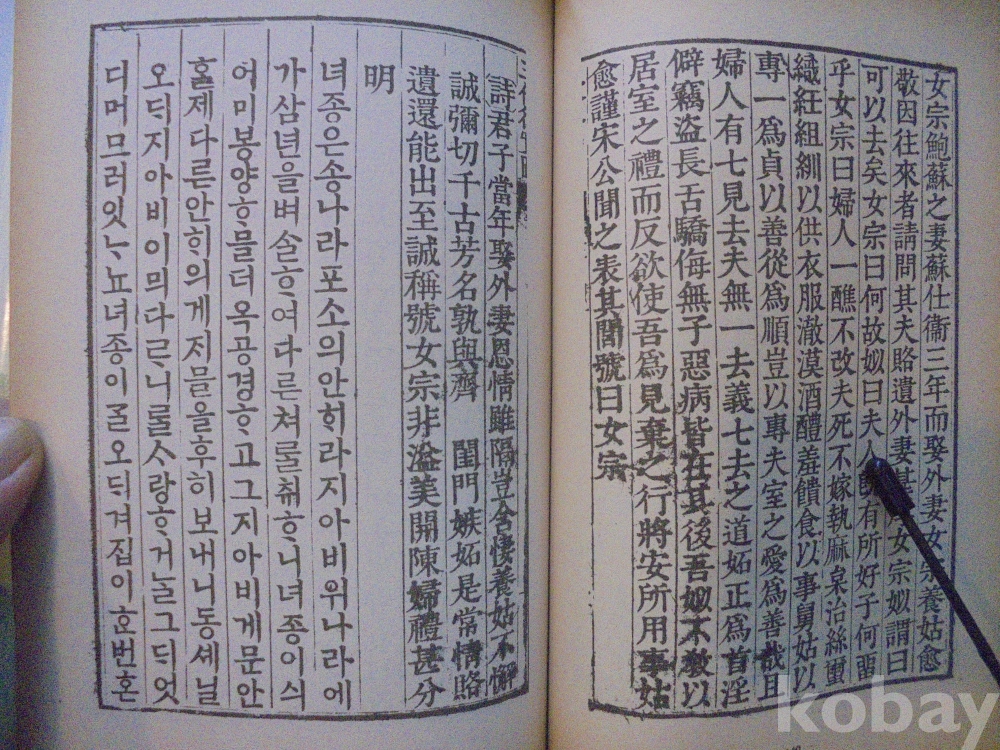 女宗鮑蘇之妻蘇仕衞三年而娶外妻女宗養姑愈
敬因往來者請問其夫賂遺外妻甚 女宗姒謂曰
可以去矣女宗曰何故姒曰夫人 有所好子何留
乎女宗曰婦人一醮不改夫死不嫁執麻枲治絲繭
織紝組紃以供衣服澈漠酒醴羞饋食以事舅姑以
專一爲貞以善從爲順豈以專夫室之愛爲善哉且
婦人有七見去夫無一去義七去之道妬正爲首淫
僻竊盜長舌驕侮無子惡病皆在其後吾姒不敎以
居室之禮而反欲使吾爲見棄之行將安所用事姑
愈謹宋公聞之表其閭號曰女宗
詩君子當年娶外妻恩情雖隔豈含悽養姑不懈
誠彌切千古芳名孰與齊 閨門嫉妬是常情賂
遺還能出至誠稱號女宗非溢美開陳婦禮甚分
明
녀종은송나라포소의안ᄒᆡ라지아비위나라에
가삼년을벼슬ᄒᆞ여다른쳐ᄅᆞᆯ췌ᄒᆞ니녀종이싀
어미봉양ᄒᆞ믈더옥공경ᄒᆞ고그지아비게문안
ᄒᆞᆯ제다ᄅᆞᆫ안ᄒᆡ의게ᄌᆡ믈을후히보내니동셰닐
오ᄃᆡ지아비이믜다ᄅᆞ니ᄅᆞᆯᄉᆞ랑ᄒᆞ거ᄂᆞᆯ그ᄃᆡ엇
디머므러잇ᄂᆞ뇨녀종이ᄀᆞᆯ오ᄃᆡ겨집이ᄒᆞᆫ번혼
kobay